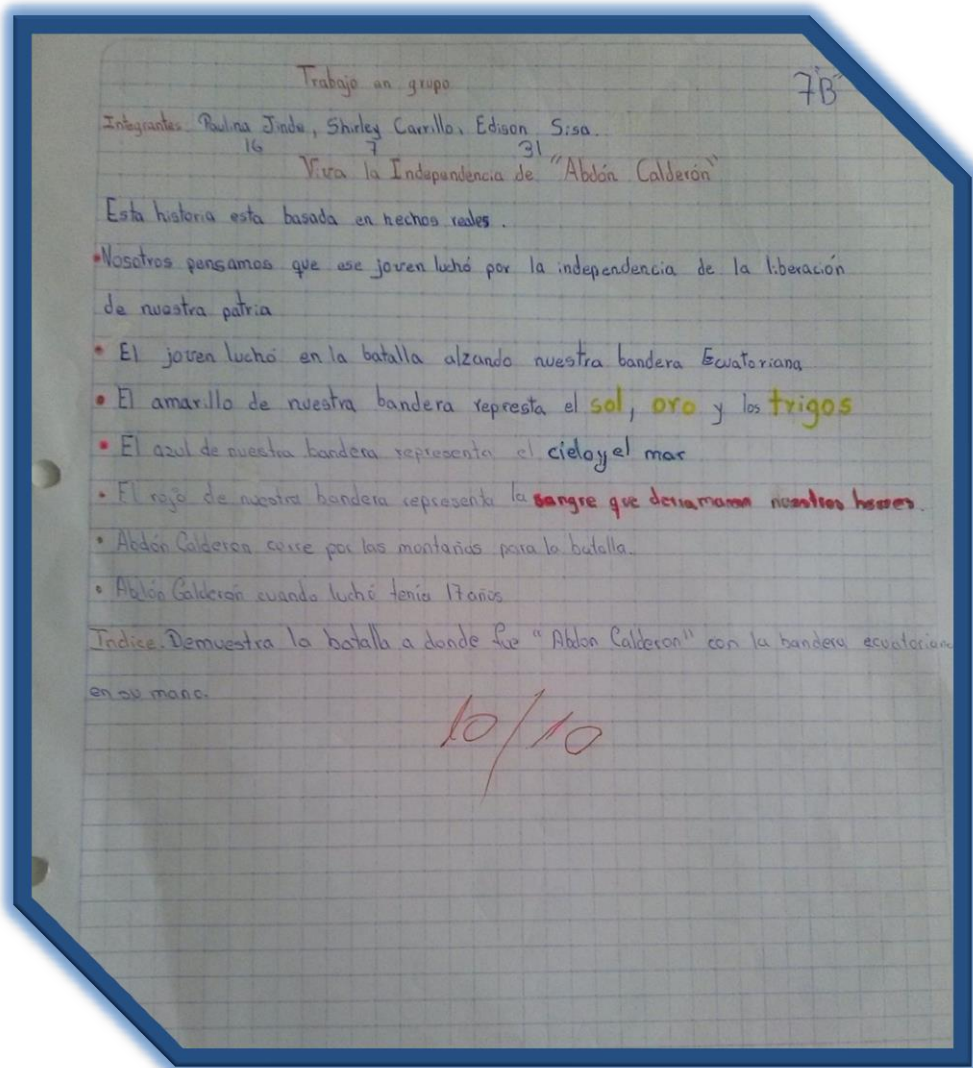 Trabajo en grupo
7"B"
Integrantes Paulina Jinde, Shirley Carrillo, Edison Sisa.
16 7 31
Viva la Independencia de "Abdón Calderón"
Esta historia esta basada en hechos reales.
•Nosotros pensamos que ese joven luchó por la independencia de la liberación
de nuestra patria
• El joven luchó en la batalla alzando nuestra bandera Ecuatoriana
• El amarillo de nuestra bandera represta el sol, oro y los trigos
• El azul de nuestra bandera representa el cielo y el mar
• El rojo de nuestra bandera representa la sangre que derramaron nuestros heroes.
• Abdón Calderon corre por las montañas para la batalla.
• Abdón Calderón cuando luchó tenia 17 años
Indice. Demuestra la batalla a donde fue "Abdon Calderon" con la bandera ecuatoriana
en su mano.
10/10